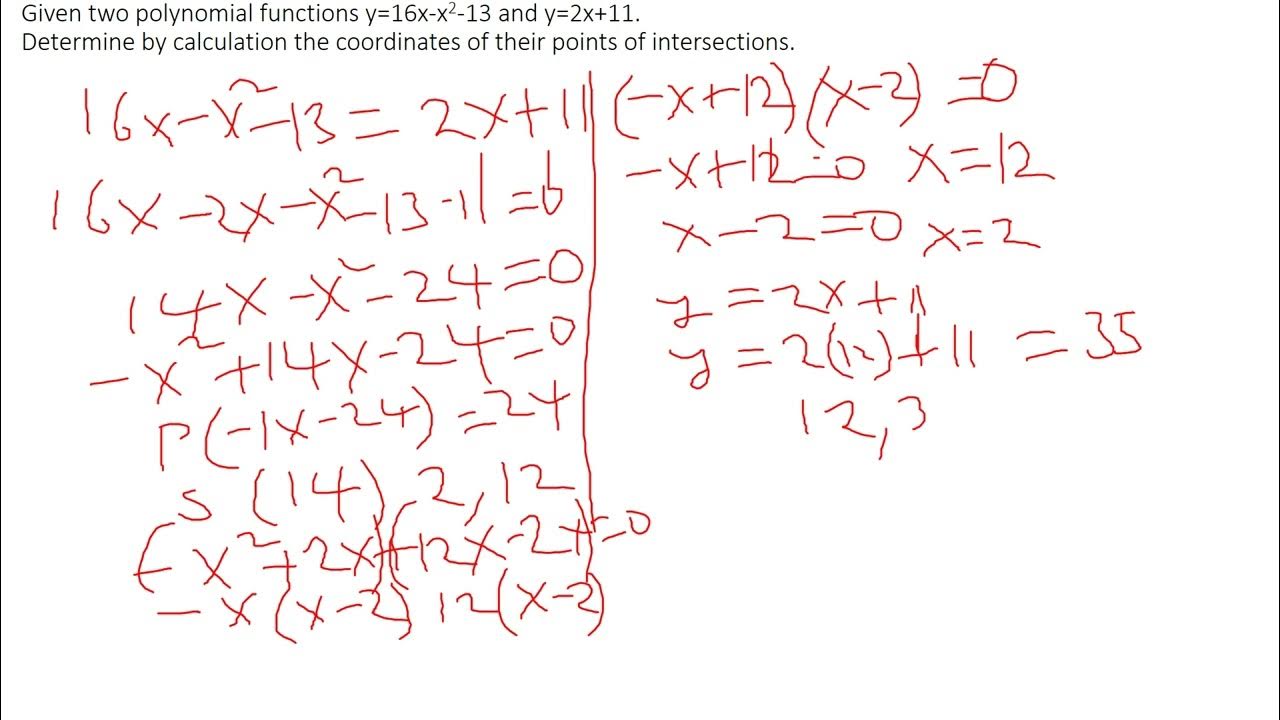 Given two polynomial functions y=16x-x²-13 and y=2x+11.
Determine by calculation the coordinates of their points of intersections.
16x-x²-13 = 2x+11
16x-2x-x²-13-11=0
14x-x²-24=0
-x²+14x-24=0
P(-1x-24)=24
S (14) 2,12
(-x²+2x)+(12x-24)=0
-x(x-2) 12(x-2)
(-x+12)(x-2)=0
-x+12=0 x=12
x-2=0 x=2
y=2x+11
y=2(12)+11 = 35
12,3